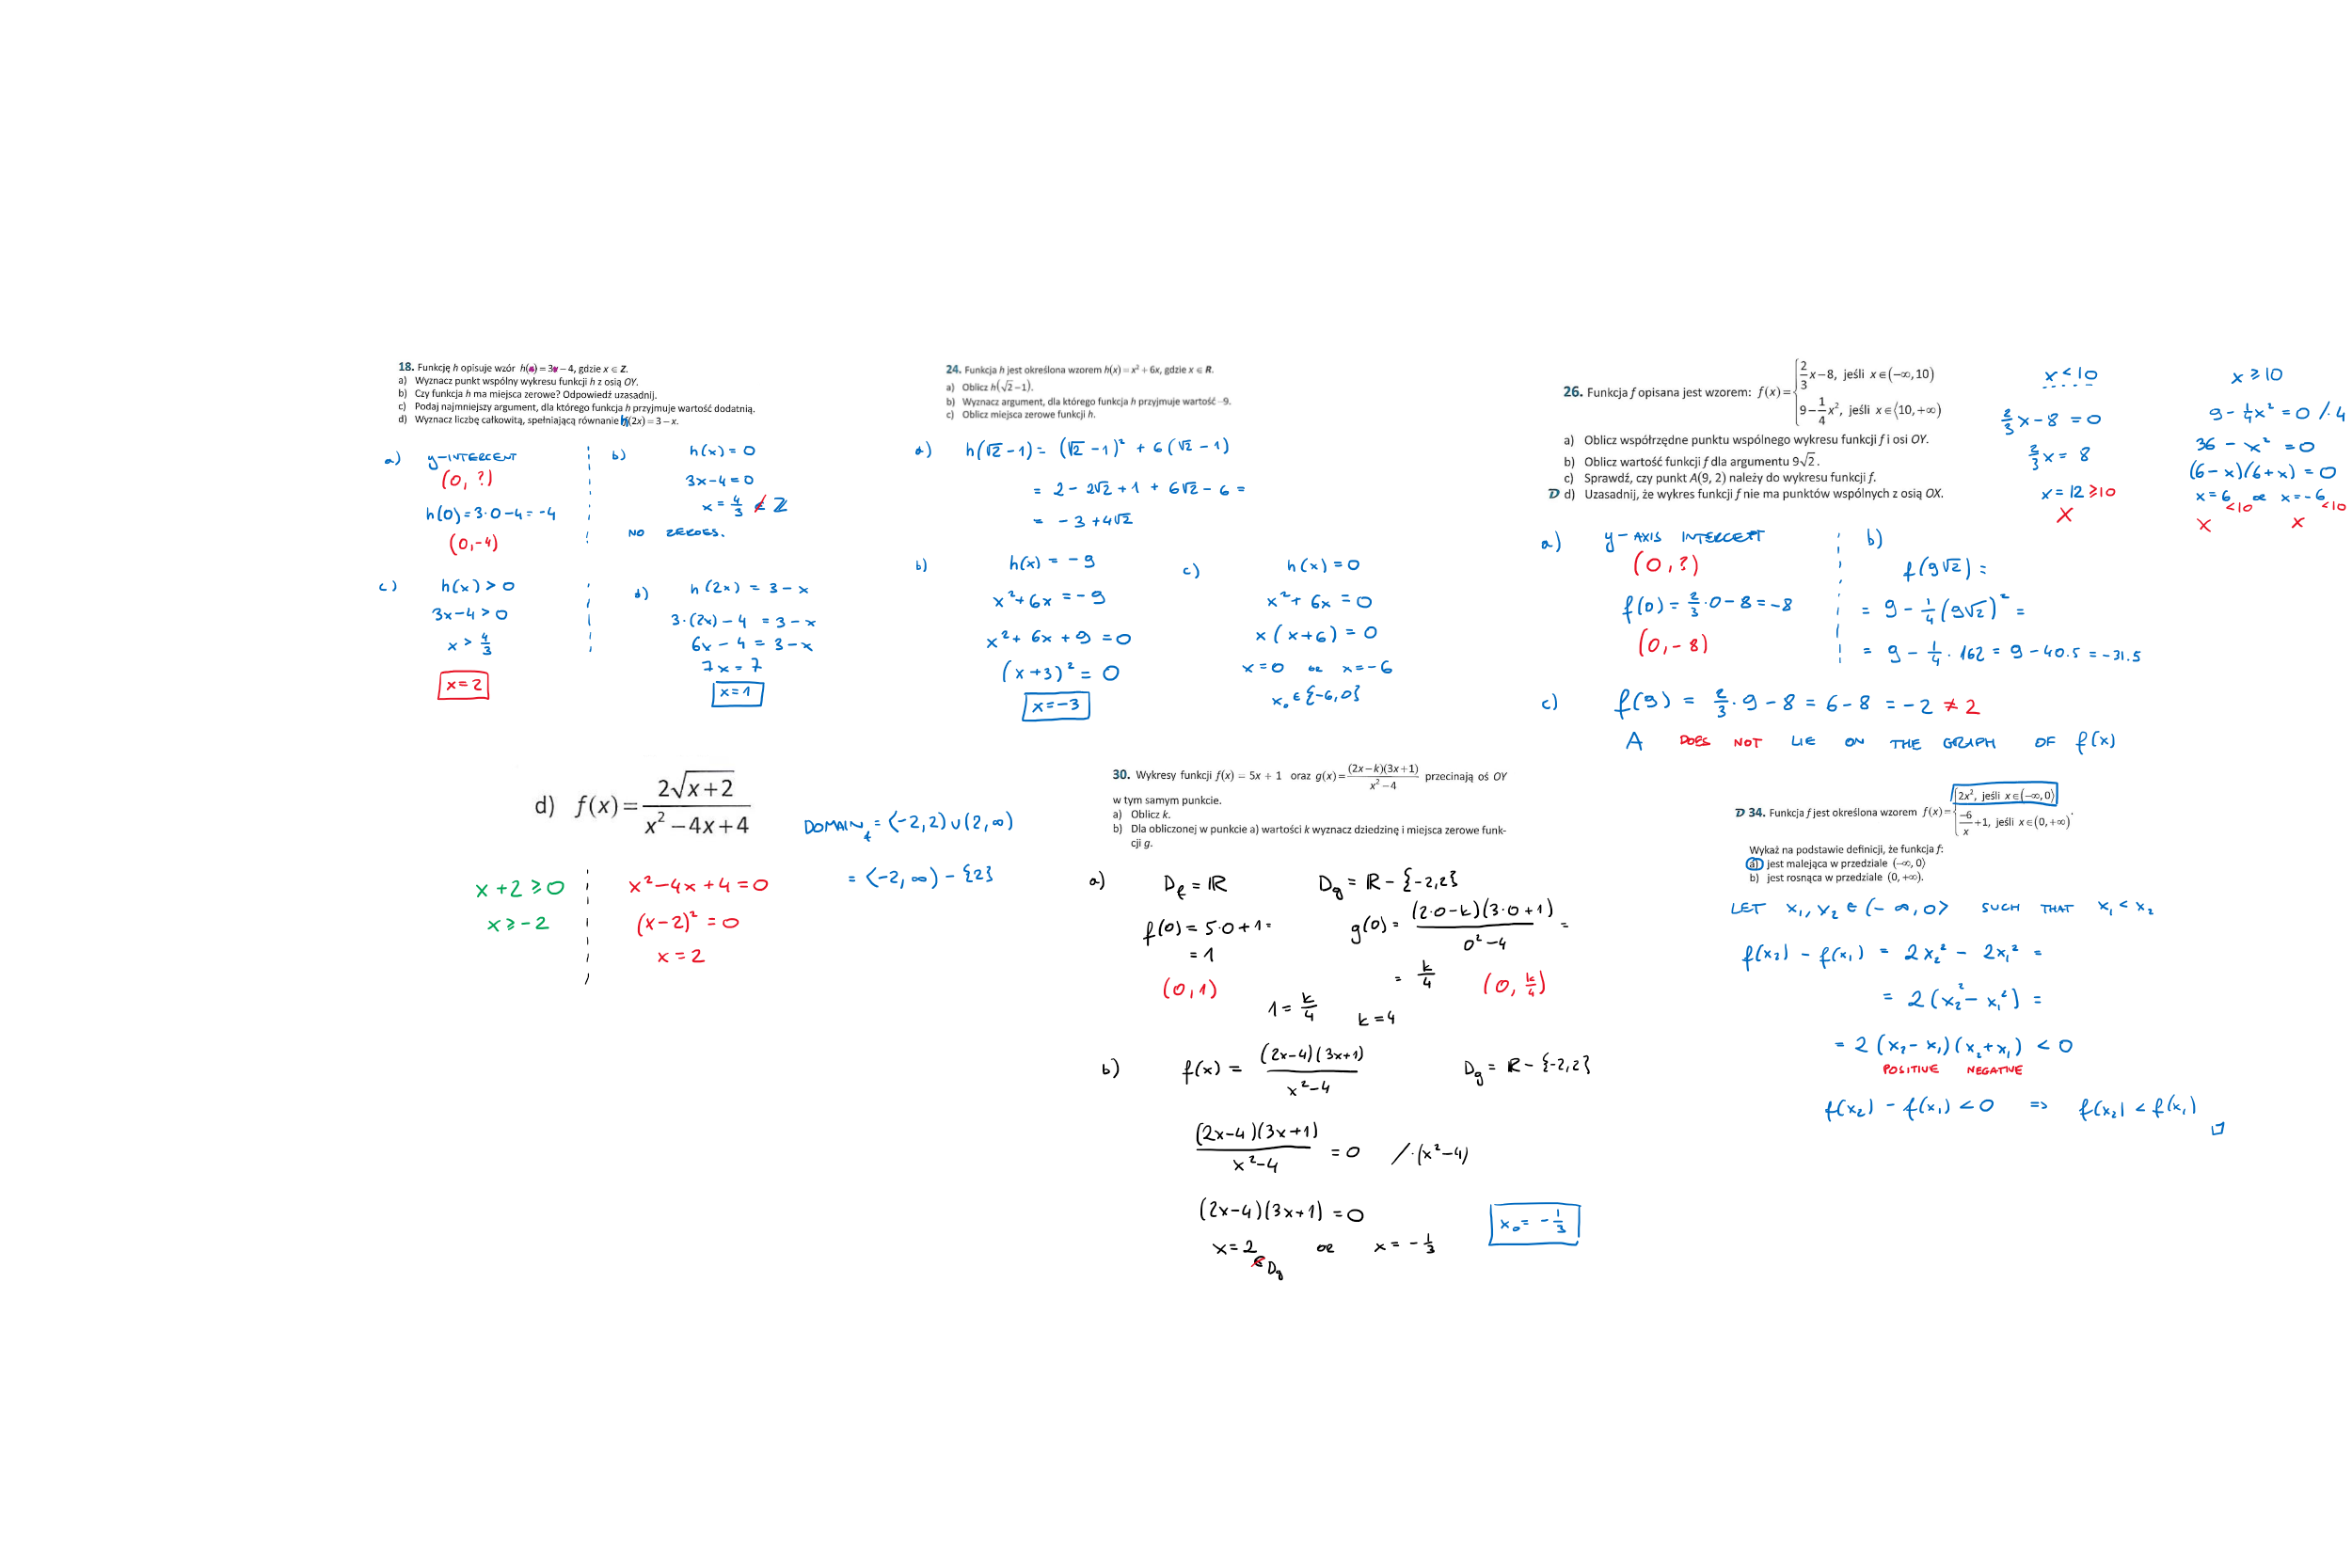 18. Funkcję h opisuje wzór h(x) = 3x − 4, gdzie x ∈ Z.
a) Wyznacz punkt wspólny wykresu funkcji h z osią OY.
b) Czy funkcja h ma miejsca zerowe? Odpowiedź uzasadnij.
c) Podaj najmniejszy argument, dla którego funkcja h przyjmuje wartość dodatnią.
d) Wyznacz liczbę całkowitą, spełniającą równanie h(2x) = 3 − x.
a) y-INTERCENT
(0, ?)
h(0) = 3·0 − 4 = −4
(0, −4)
b) h(x) = 0
3x − 4 = 0
x = 4/3 ∉ ℤ
NO ZEROES.
c) h(x) > 0
3x − 4 > 0
x > 4/3
x = 2
d) h(2x) = 3 − x
3·(2x) − 4 = 3 − x
6x − 4 = 3 − x
7x = 7
x = 1
24. Funkcja h jest określona wzorem h(x) = x² + 6x, gdzie x ∈ R.
a) Oblicz h(√2 − 1).
b) Wyznacz argument, dla którego funkcja h przyjmuje wartość −9.
c) Oblicz miejsca zerowe funkcji h.
a) h(√2 − 1) = (√2 − 1)² + 6(√2 − 1)
= 2 − 2√2 + 1 + 6√2 − 6 =
= −3 + 4√2
b) h(x) = −9
x² + 6x = −9
x² + 6x + 9 = 0
(x + 3)² = 0
x = −3
c) h(x) = 0
x² + 6x = 0
x(x + 6) = 0
x = 0 OR x = −6
x₀ ∈ {−6, 0}
26. Funkcja f opisana jest wzorem: f(x) = { 2/3 x − 8, jeśli x ∈ (−∞, 10)
9 − 1/4 x², jeśli x ∈ ⟨10, +∞)
a) Oblicz współrzędne punktu wspólnego wykresu funkcji f i osi OY.
b) Oblicz wartość funkcji f dla argumentu 9√2.
c) Sprawdź, czy punkt A(9, 2) należy do wykresu funkcji f.
D d) Uzasadnij, że wykres funkcji f nie ma punktów wspólnych z osią OX.
x < 10
2/3 x − 8 = 0
2/3 x = 8
x = 12 ⩾ 10
X
x ⩾ 10
9 − 1/4 x² = 0 /·4
36 − x² = 0
(6 − x)(6 + x) = 0
x = 6 < 10 OR x = −6 < 10
X X
a) y-AXIS INTERCEPT
(0, ?)
f(0) = 2/3·0 − 8 = −8
(0, −8)
b)
f(9√2) =
= 9 − 1/4 (9√2)² =
= 9 − 1/4 · 162 = 9 − 40.5 = −31.5
c) f(9) = 2/3·9 − 8 = 6 − 8 = −2 ≠ 2
A DOES NOT LIE ON THE GRAPH OF f(x)
d) f(x) = 2√(x+2) / (x² − 4x + 4)
DOMAIN_f = ⟨−2, 2) ∪ (2, ∞)
= ⟨−2, ∞) − {2}
x + 2 ⩾ 0
x ⩾ −2
x² − 4x + 4 = 0
(x − 2)² = 0
x = 2
30. Wykresy funkcji f(x) = 5x + 1 oraz g(x) = (2x − k)(3x + 1) / (x² − 4) przecinają oś OY
w tym samym punkcie.
a) Oblicz k.
b) Dla obliczonej w punkcie a) wartości k wyznacz dziedzinę i miejsca zerowe funk-
cji g.
a) D_f = ℝ
f(0) = 5·0 + 1 =
= 1
(0, 1)
D_g = ℝ − {−2, 2}
g(0) = (2·0 − k)(3·0 + 1) / (0² − 4) =
= k/4 (0, k/4)
1 = k/4 k = 4
b) f(x) = (2x − 4)(3x + 1) / (x² − 4) D_g = ℝ − {−2, 2}
(2x − 4)(3x + 1) / (x² − 4) = 0 /·(x² − 4)
(2x − 4)(3x + 1) = 0
x = 2 ∉ D_g OR x = −1/3
x₀ = −1/3
D 34. Funkcja f jest określona wzorem f(x) = { 2x², jeśli x ∈ (−∞, 0⟩
−6/x + 1, jeśli x ∈ (0, +∞) .
Wykaż na podstawie definicji, że funkcja f:
a) jest malejąca w przedziale (−∞, 0⟩
b) jest rosnąca w przedziale (0, +∞).
LET x₁, x₂ ∈ (−∞, 0⟩ SUCH THAT x₁ < x₂
f(x₂) − f(x₁) = 2x₂² − 2x₁² =
= 2(x₂² − x₁²) =
= 2(x₂ − x₁)(x₂ + x₁) < 0
POSITIVE NEGATIVE
f(x₂) − f(x₁) < 0 ⇒ f(x₂) < f(x₁)